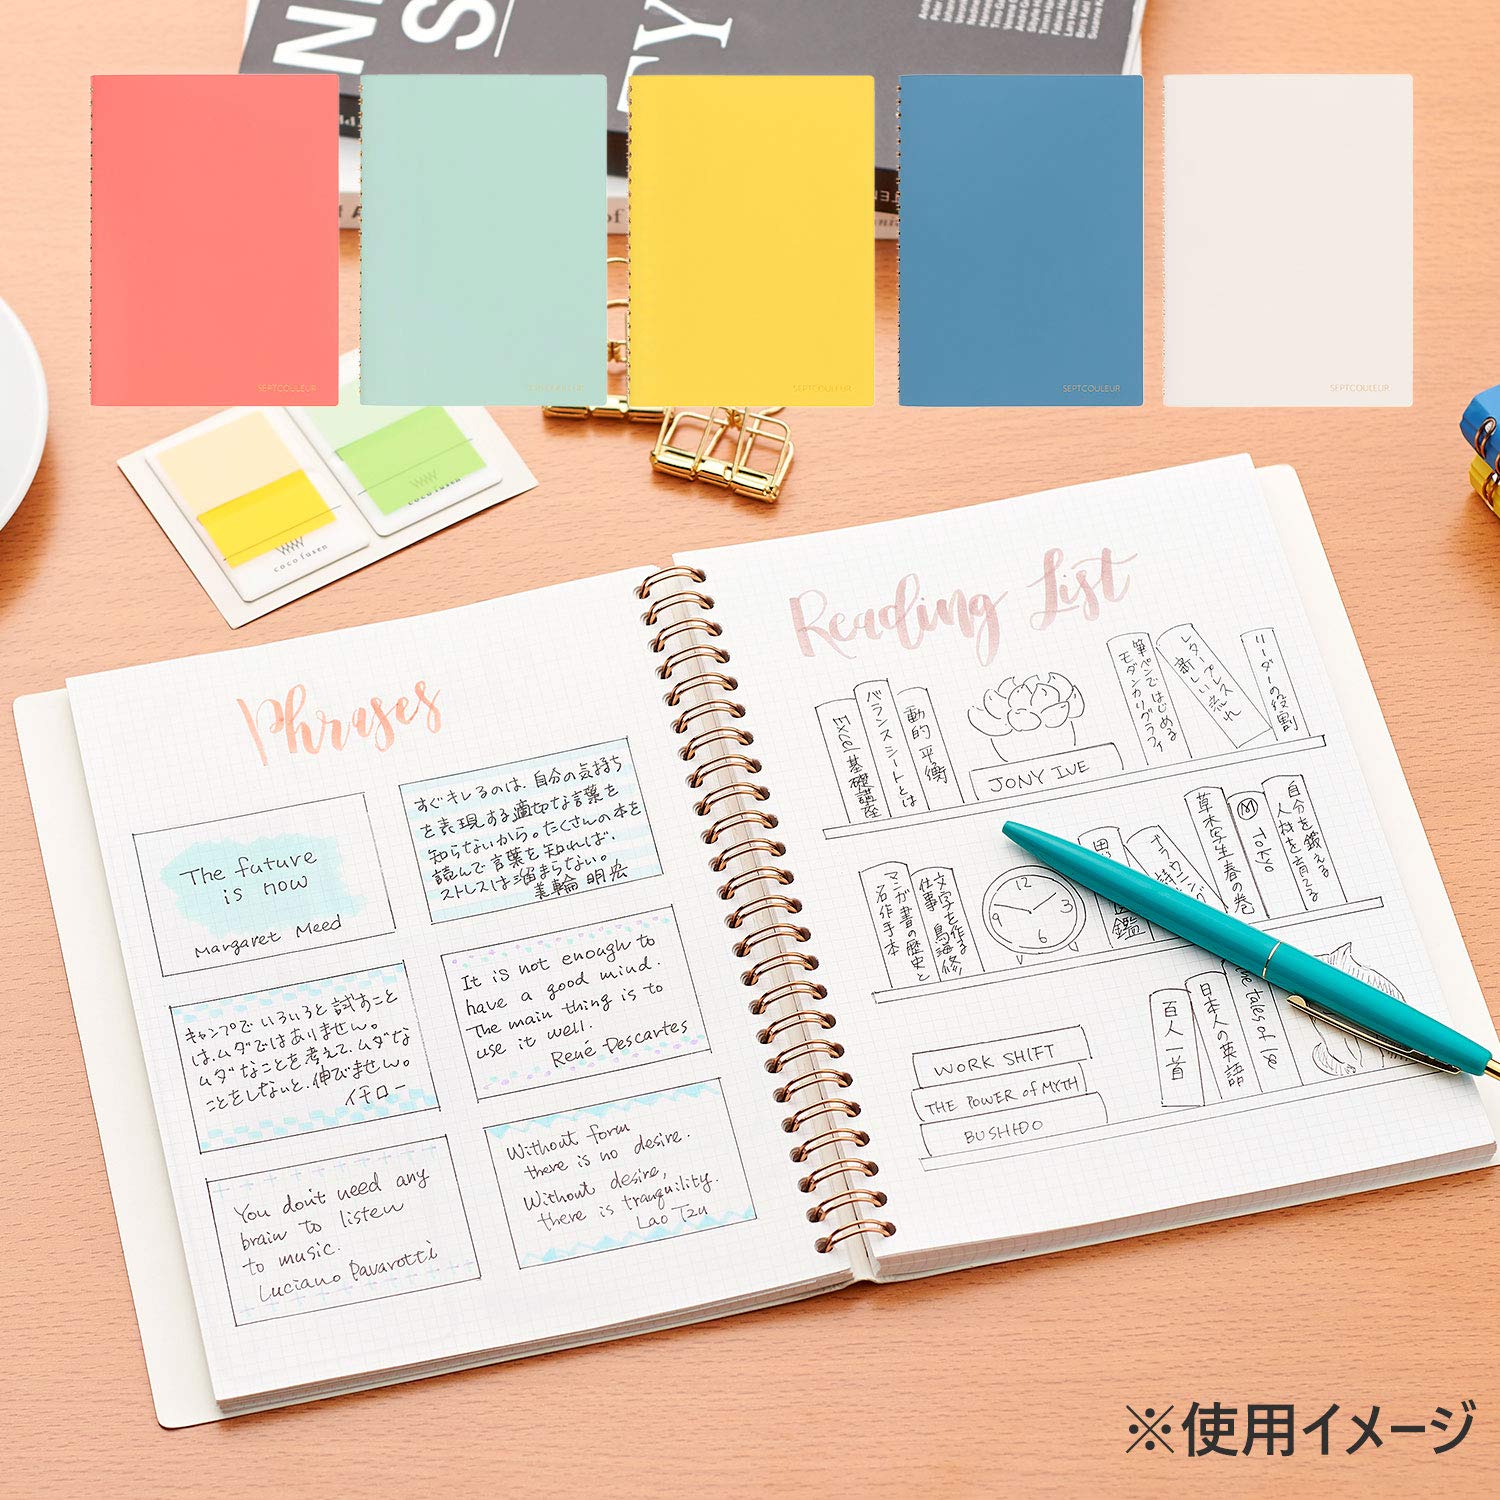 SEPTCOULEUR
SEPTCOULEUR
SEPTCOULEUR
SEPTCOULEUR
coco fusen
coco fusen
Phrases
The future
is now
Margaret Meed
すぐキレるのは、自分の気持ち
を表現する適切な言葉を
知らないから。たくさんの本を
読んで言葉を知れば、
ストレスは溜まらない。
美輪明宏
キャンプでいろいろと試すこと
は、ムダではありません。
ムダなことを考えて、ムダな
ことをしないと、伸びません。
イチロー
It is not enough to
have a good mind.
The main thing is to
use it well.
René Descartes
You don't need any
brain to listen
to music.
Luciano Pavarotti
Without form
there is no desire.
Without desire,
there is tranquility.
Lao Tzu
Reading List
Excel基礎講座
バランスシートとは
動的平衡
JONY IVE
筆ペンではじめる
モダンカリグラフィ
レタープレス
新しい流れ
リーダーの役割
マンガ書の歴史と
名作手本
文字を作る
仕事 鳥海修
12
3
6
9
鑑
草木写生春の巻
M TOKYO
自分を鍛える
人材を育てる
WORK SHIFT
THE POWER of MYTH
BUSHIDO
百人一首
日本人の英語
tales of
※使用イメージ